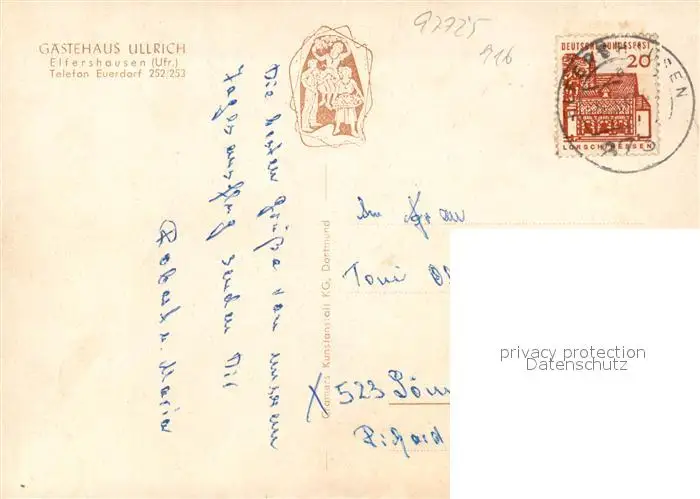 GÄSTEHAUS ULLRICH
Elfershausen (Ufr.)
Telefon Euerdorf 252/253
97725
916
DEUTSCHE BUNDESPOST
20
LORSCH/HESSEN
Die besten Grüße von unserem
Tagesausflug senden Dir
Robert u. Maria
Cramers Kunstanstalt KG, Dortmund
An Frau
Toni
523
Richard
privacy protection
Datenschutz